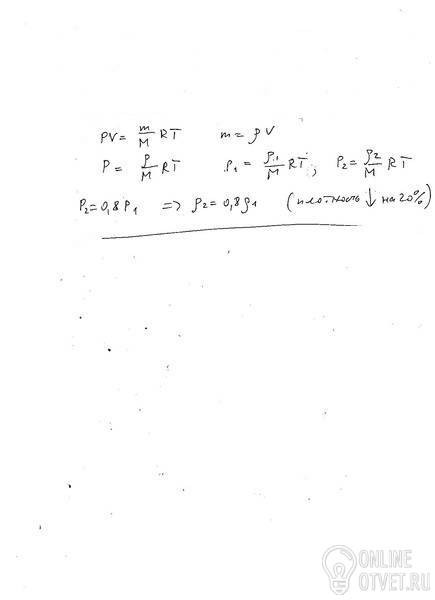 PV = m/M RT m = ρV
P = ρ/M RT P₁ = ρ₁/M RT; P₂ = ρ₂/M RT
P₂ = 0,8 P₁ => ρ₂ = 0,8 ρ₁ (плотность ↓ на 20%)
ONLINE
OTVET.RU